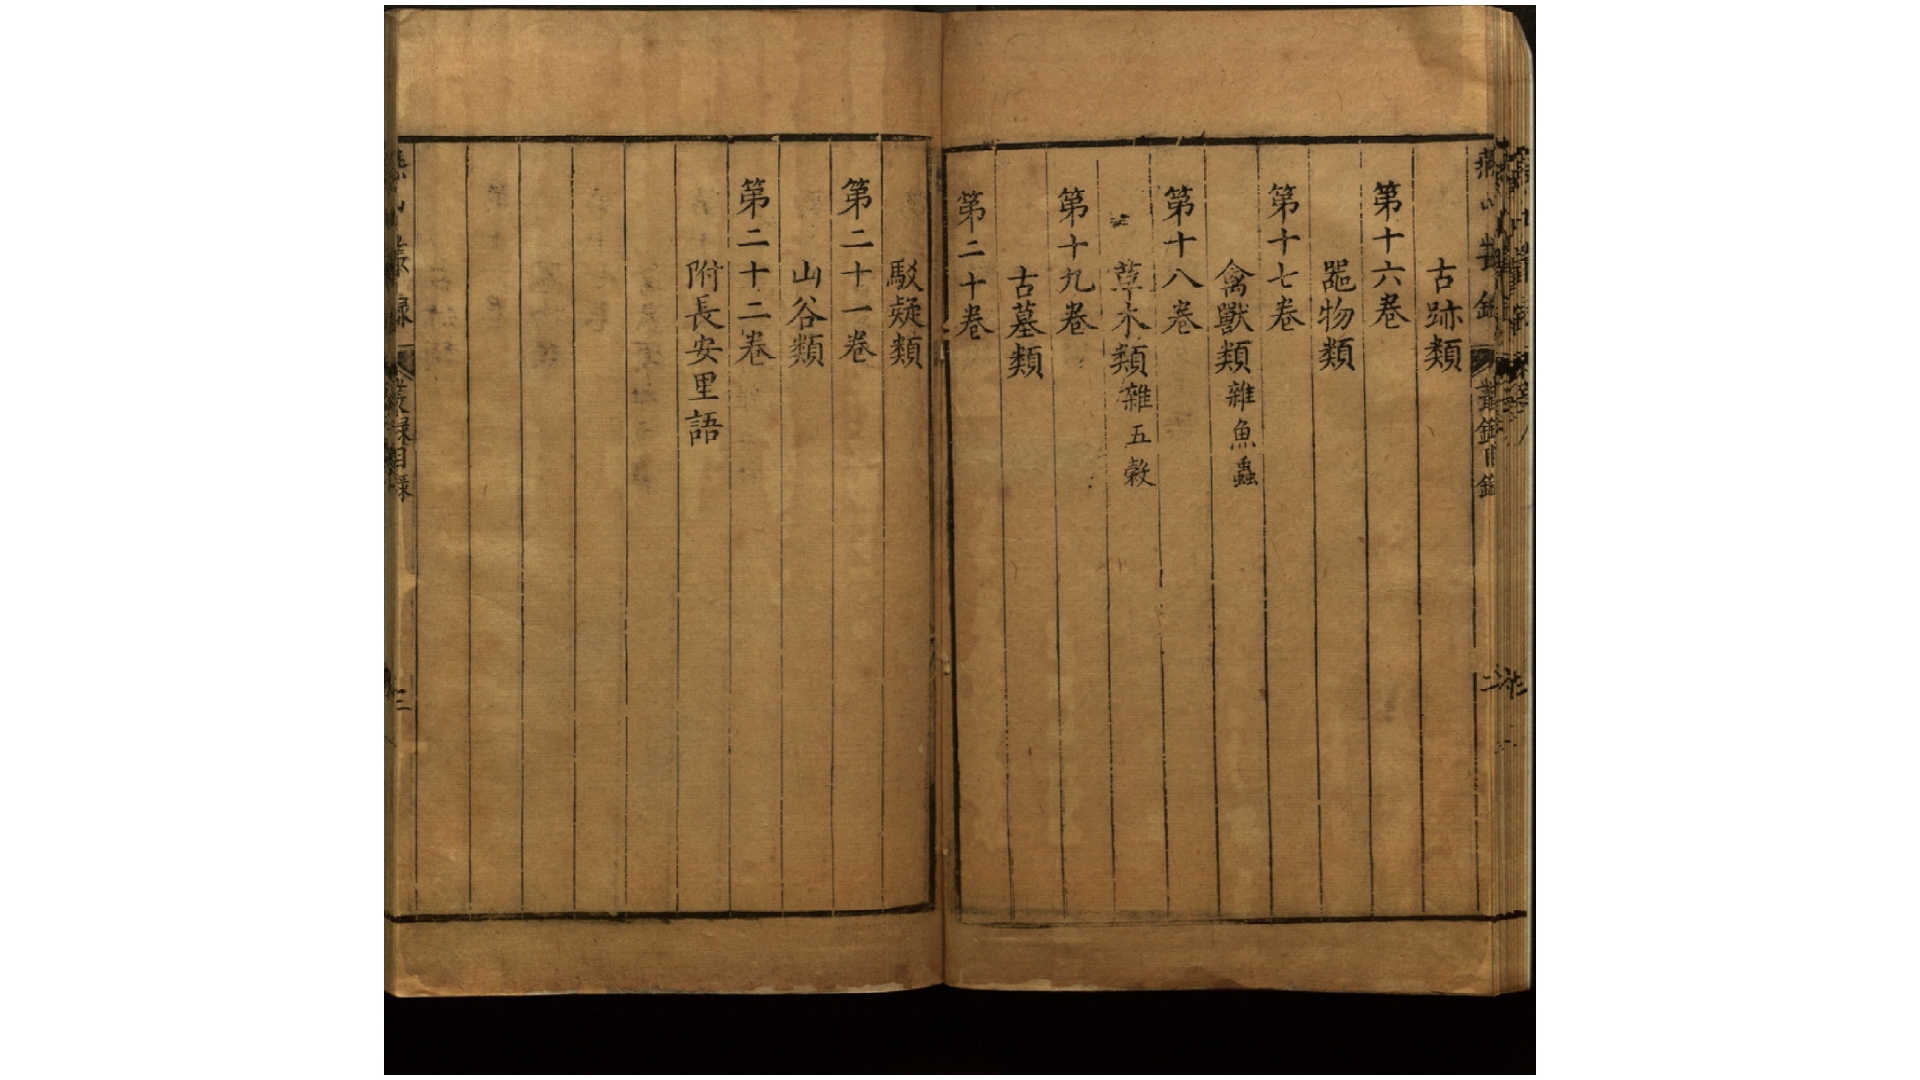 古跡類
第十六卷
噐物類
第十七卷
禽獸類雜魚蟲
第十八卷
草木類雜五穀
第十九卷
古墓類
第二十卷
駁疑類
第二十一卷
山谷類
第二十二卷
附長安里語